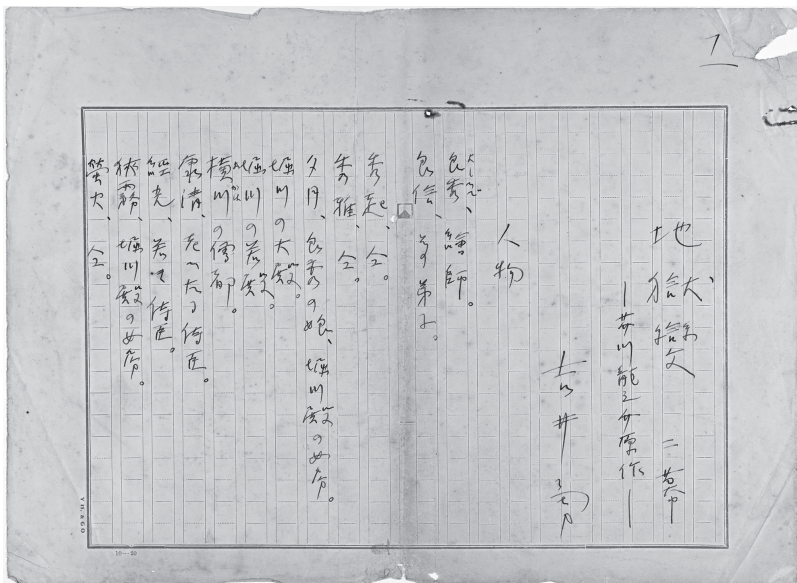 1
地獄變 二幕
―芥川龍之介原作―
吉井勇
人物
良秀、繪師。
良信、その弟子。
秀起、仝。
秀雅、仝。
夕月、良秀の娘、堀川殿の女房。
堀川の大殿。
堀川の若殿。
横川の僧都。
宗清、老いたる侍臣。
經光、若き侍臣。
狹霧、堀川殿の女房。
螢火、仝。
10―20